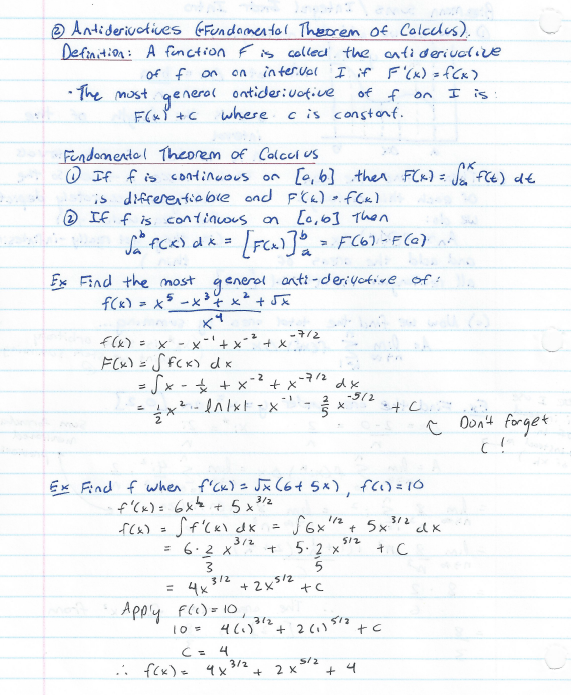 ② Antiderivatives (Fundamental Theorem of Calculus).
Definition: A function F is called the antiderivative
of f on an interval I if F'(x) = f(x)
· The most general antiderivative of f on I is:
F(x) + c where c is constant.
Fundamental Theorem of Calculus
① If f is continuous on [a,b] then F(x) = ∫ₐˣ f(t) dt
is differentiable and F'(x) = f(x)
② If f is continuous on [a,b] Then
∫ₐᵇ f(x) dx = [F(x)]ₐᵇ = F(b) - F(a)
Ex Find the most general anti-derivative of:
f(x) = x⁵ - x³ + x² + √x
x⁴
f(x) = x - x⁻¹ + x⁻² + x^(-7/2)
F(x) = ∫ f(x) dx
= ∫ x - 1/x + x⁻² + x^(-7/2) dx
= 1/2 x² - ln|x| - x⁻¹ - 2/5 x^(-5/2) + C
Don't forget
C!
Ex Find f when f'(x) = √x (6 + 5x), f(1) = 10
f'(x) = 6x^(1/2) + 5x^(3/2)
f(x) = ∫ f'(x) dx = ∫ 6x^(1/2) + 5x^(3/2) dx
= 6 · 2/3 x^(3/2) + 5 · 2/5 x^(5/2) + C
= 4x^(3/2) + 2x^(5/2) + C
Apply f(1) = 10,
10 = 4(1)^(3/2) + 2(1)^(5/2) + C
C = 4
∴ f(x) = 4x^(3/2) + 2x^(5/2) + 4